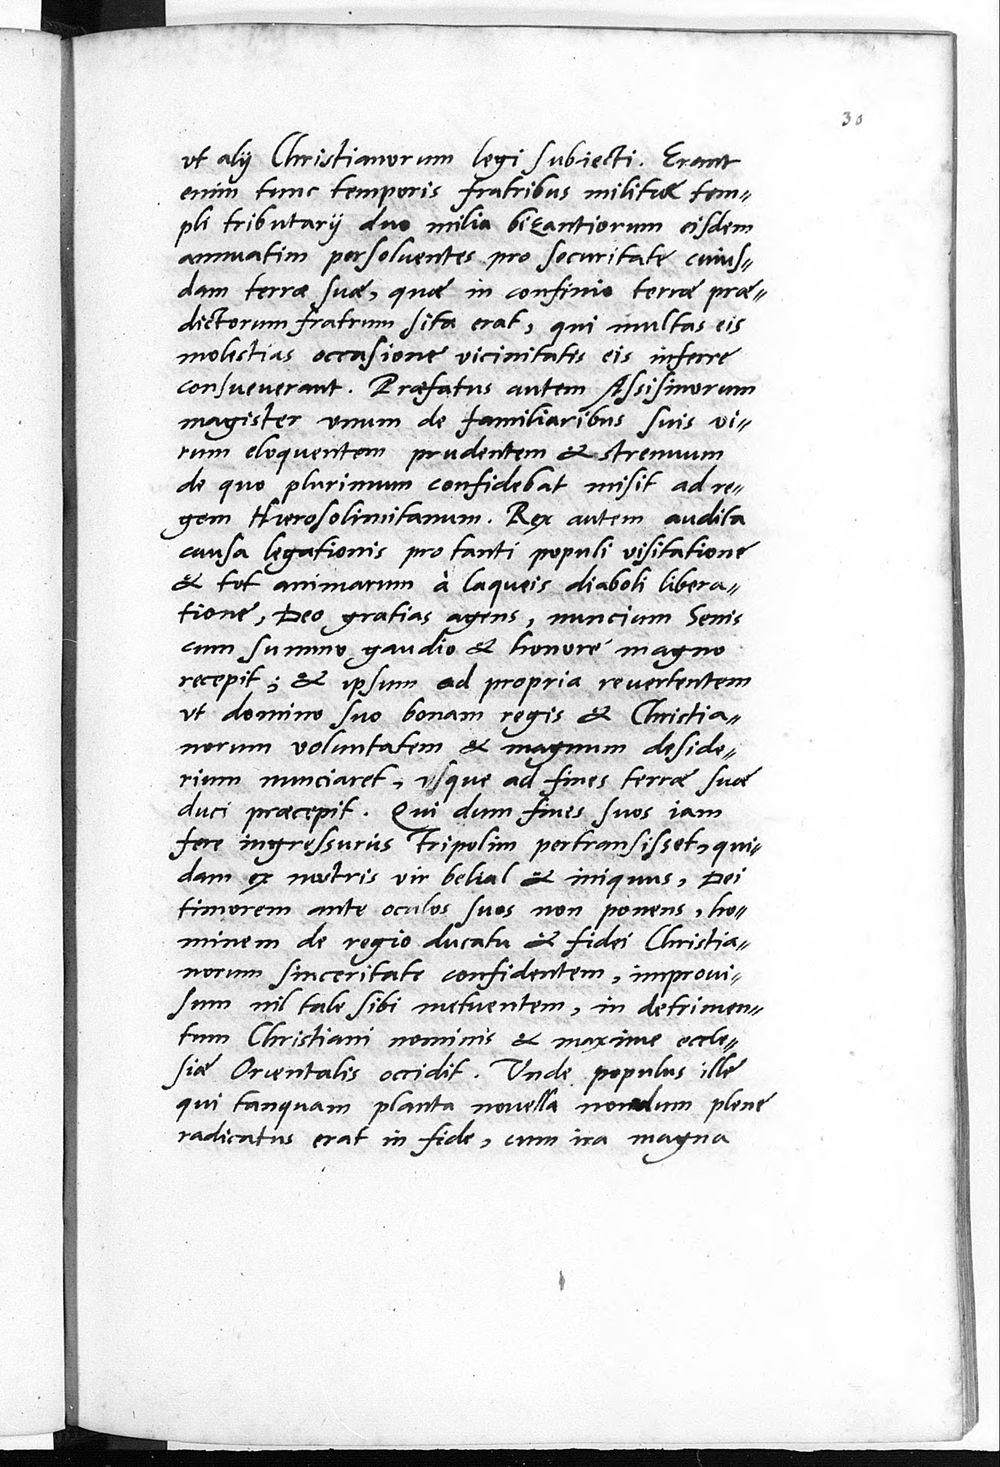 30
vt alij Christianorum legi subiecti. Erant
enim tunc temporis fratribus militiæ tem„
pli tributarij duo milia bizantiorum eisdem
annuatim persoluentes pro securitate cuius„
dam terræ suæ, quæ in confinio terræ præ„
dictorum fratrum sita erat, qui multas eis
molestias occasione vicinitatis eis inferre
consueuerant. Præfatus autem Assisinorum
magister vnum de familiaribus suis vi„
rum eloquentem prudentem & strenuum
de quo plurimum confidebat misit ad re„
gem Hierosolimitanum. Rex autem audita
causa legationis pro tanti populi visitatione
& tot animarum à laqueis diaboli libera„
tione, Deo gratias agens, nuncium Senis
cum summo gaudio & honore magno
recepit; & ipsum ad propria reuertentem
vt domino suo bonam regis & Christia„
norum voluntatem & magnum deside„
rium nunciaret, vsque ad fines terræ suæ
duci præcepit. Qui dum fines suos iam
fere ingressurus Tripolim pertransisset, qui„
dam ex nostris vir belial & iniquus, Dei
timorem ante oculos suos non ponens, ho„
minem de regio ducatu & fidei Christia„
norum sinceritate confidentem, improui„
sum nil tale sibi metuentem, in detrimen„
tum Christiani nominis & maxime eccle„
siæ Orientalis occidit. Vnde populus ille
qui tanquam planta nouella nondum plene
radicatus erat in fide, cum ira magna